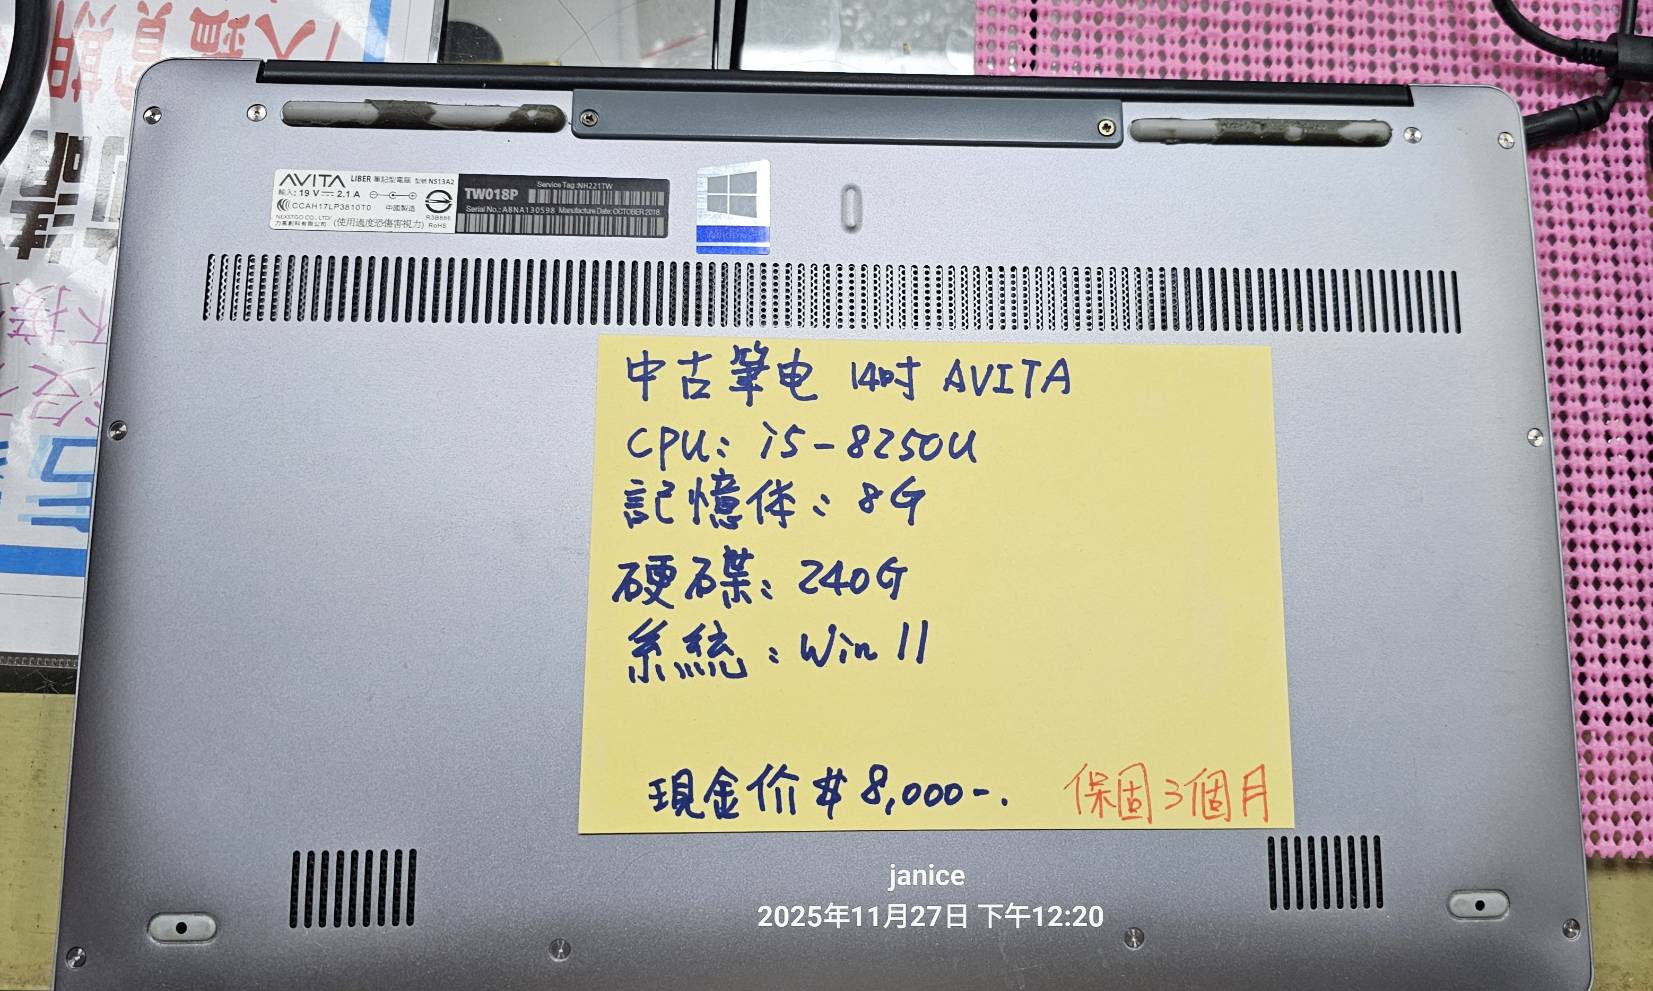 AVITA LIBER 筆記型電腦 型號:NS13A2
輸入: 19 V 2.1 A
CCAH17LP3810T0 中國製造
R3B888
NEXSTGO CO., LTD/
力嘉創科有限公司 (使用過度恐傷害視力) RoHS
Service Tag:NH221TW
TW018P
Serial No.: A8NA130598 Manufacture Date: OCTOBER 2018
中古筆电 14吋 AVITA
CPU: i5-8250U
記憶体: 8G
硬碟: 240G
系統: Win 11
現金价 # 8,000-. 保固3個月
janice
2025年11月27日 下午12:20